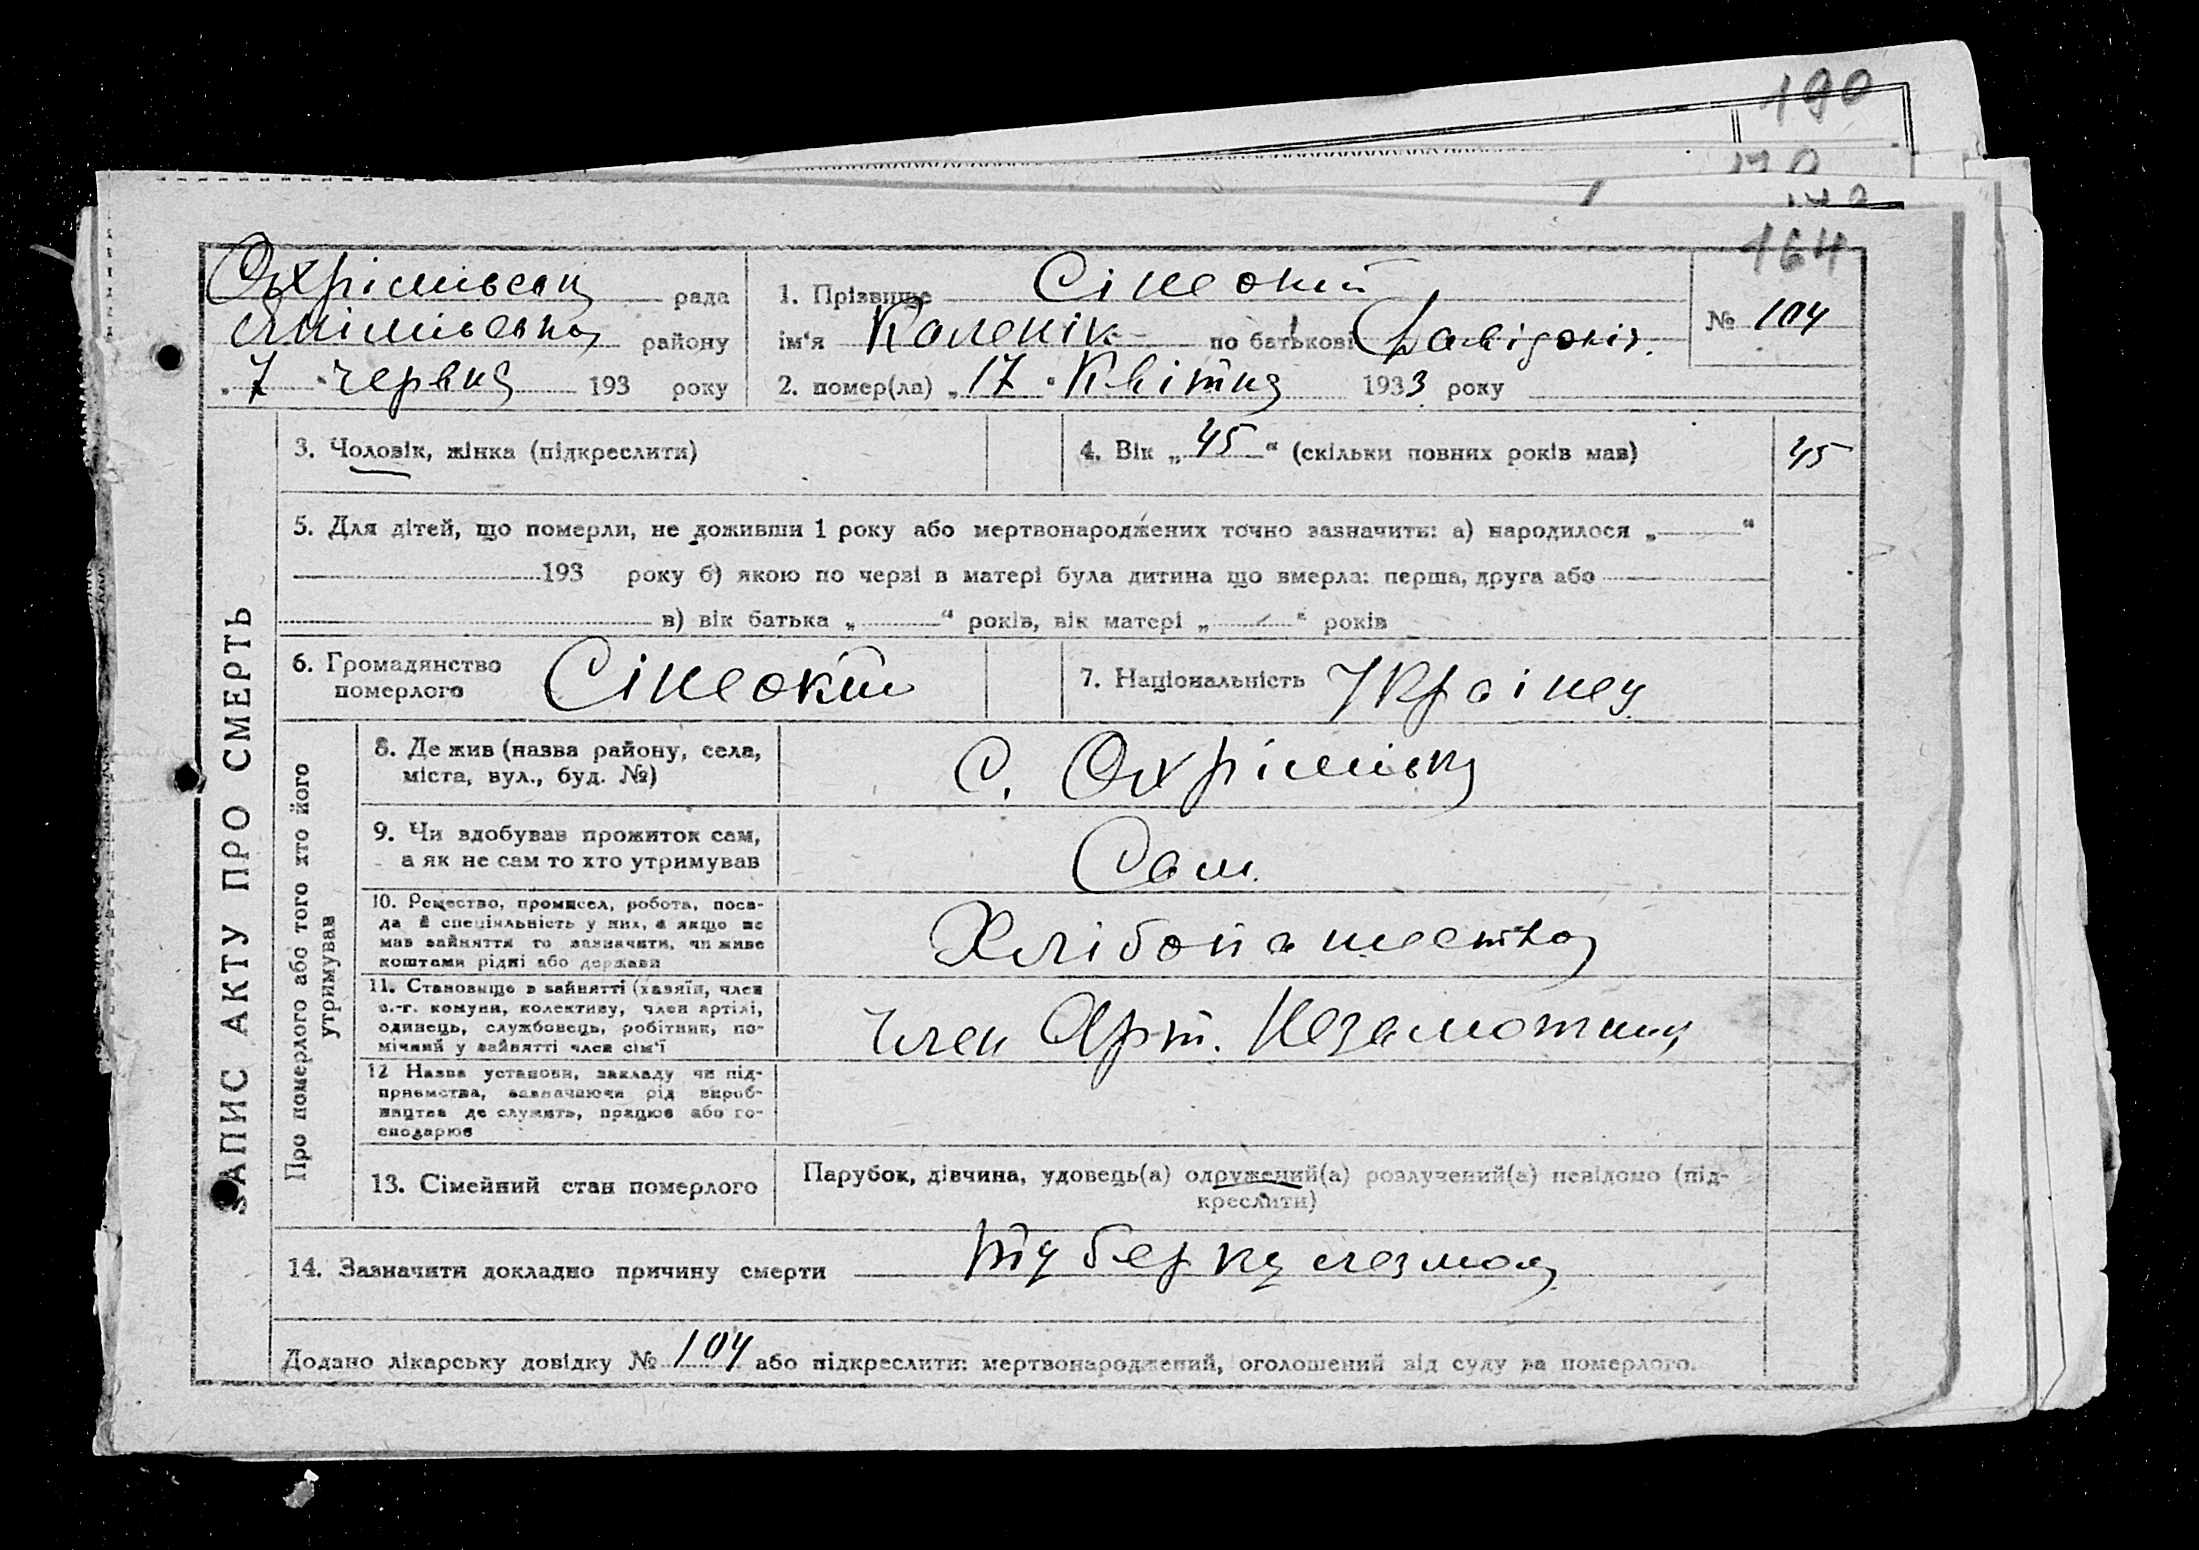 190
164
Охрімівськ рада
Якімівська району
„ 7 " червня 193 року
1. Прізвище Сінеокий
ім'я Каленік по батькові Давідовіч.
2. помер(ла) „ 17 " Квітня 1933 року
№ 104
ЗАПИС АКТУ ПРО СМЕРТЬ
3. Чоловік, жінка (підкреслити)
4. Вік „ 45 " (скільки повних років мав)
45
5. Для дітей, що померли, не доживши 1 року або мертвонароджених точно зазначить: а) народилося „ "
193 року б) якою по черзі в матері була дитина що вмерла: перша, друга або
в) вік батька „ " років, вік матері „ " років
6. Громадянство
померлого
Сінеокий
7. Національність Украінец
Про померлого або того хто його
утримував
8. Де жив (назва району, села,
міста, вул., буд. №)
С. Охрімівка
9. Чи здобував прожиток сам,
а як не сам то хто утримував
Сам.
10. Ремество, промисел, робота, поса-
да й спеціяльність у них, а якщо не
мав зайняття то зазначити, чи живе
коштами рідні або держави
Хлібопашества
11. Становище в зайнятті (хазяїн, член
с.-г. комуни, колективу, член артілі,
одинець, службовець, робітник, по-
мічний у зайнятті член сім'ї
Член Арт. Незаможник
12 Назва установи, закладу чи під-
приємства, зазначаючи рід вироб-
ництва де служить, працює або го-
сподарює
13. Сімейний стан померлого
Парубок, дівчина, удовець(а) одружений(а) розлучений(а) невідомо (під-
креслити)
14. Зазначити докладно причину смерти туберкулезмоя
Додано лікарську довідку № 104 або підкреслити: мертвонароджений, оголошений від суду за померлого.